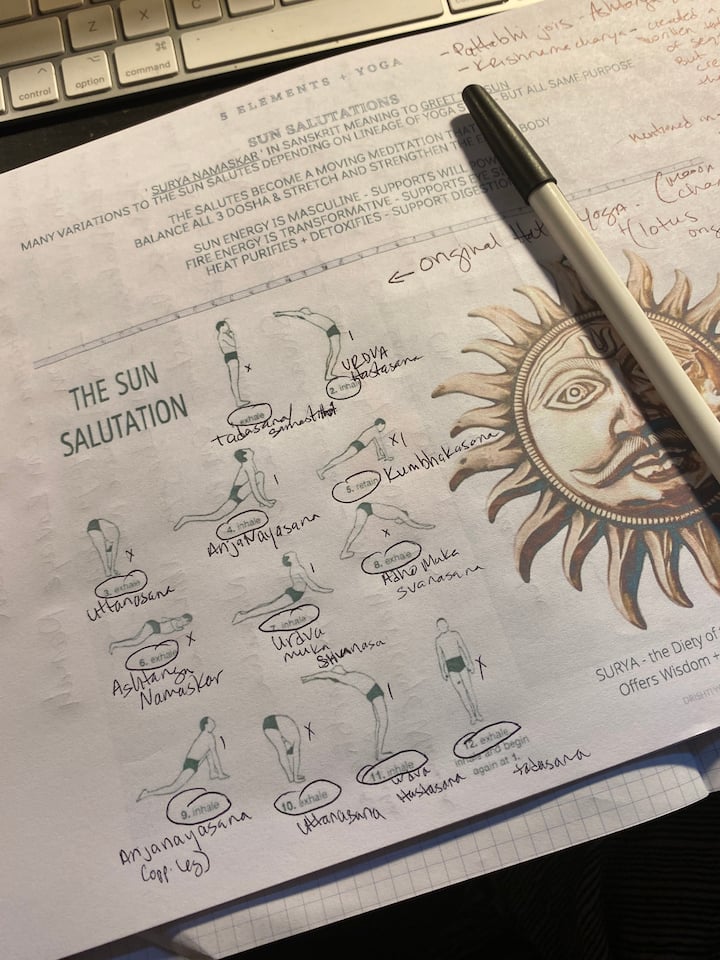 Z
X
⌘
control
option
command
5 ELEMENTS + YOGA
- Pattabhi jois - Ashtanga
- Krishnamacharya - created a
written
But
mentioned in
SUN SALUTATIONS
'SURYA NAMASKAR' IN SANSKRIT MEANING TO GREET SUN
MANY VARIATIONS TO THE SUN SALUTES DEPENDING ON LINEAGE OF YOGA BUT ALL SAME PURPOSE
THE SALUTES BECOME A MOVING MEDITATION THAT
BALANCE ALL 3 DOSHA & STRETCH AND STRENGTHEN THE BODY
SUN ENERGY IS MASCULINE - SUPPORTS WILL
FIRE ENERGY IS TRANSFORMATIVE - SUPPORTS EYE
HEAT PURIFIES + DETOXIFIES - SUPPORT DIGESTION
← original yoga. (moon
(lotus
THE SUN
SALUTATION
x
exhale
Tadasana/
Samastithi
I
2. inhale
URDVA
Hastasana
x
3. exhale
Uttanasana
I
4. inhale
Anjanayasana
XI
5. retain
Kumbhakasana
x
6. exhale
Ashtanga
Namaskar
I
7. inhale
Urdva
muka
Shvanasa
x
8. exhale
Adho Muka
Svanasana
I
9. inhale
Anjanayasana
(opp. leg)
x
10. exhale
Uttanasana
I
11. inhale
Urdva
Hastasana
x
12. exhale
inhale and begin
again at 1.
tadasana
SURYA - the Diety of
Offers Wisdom +